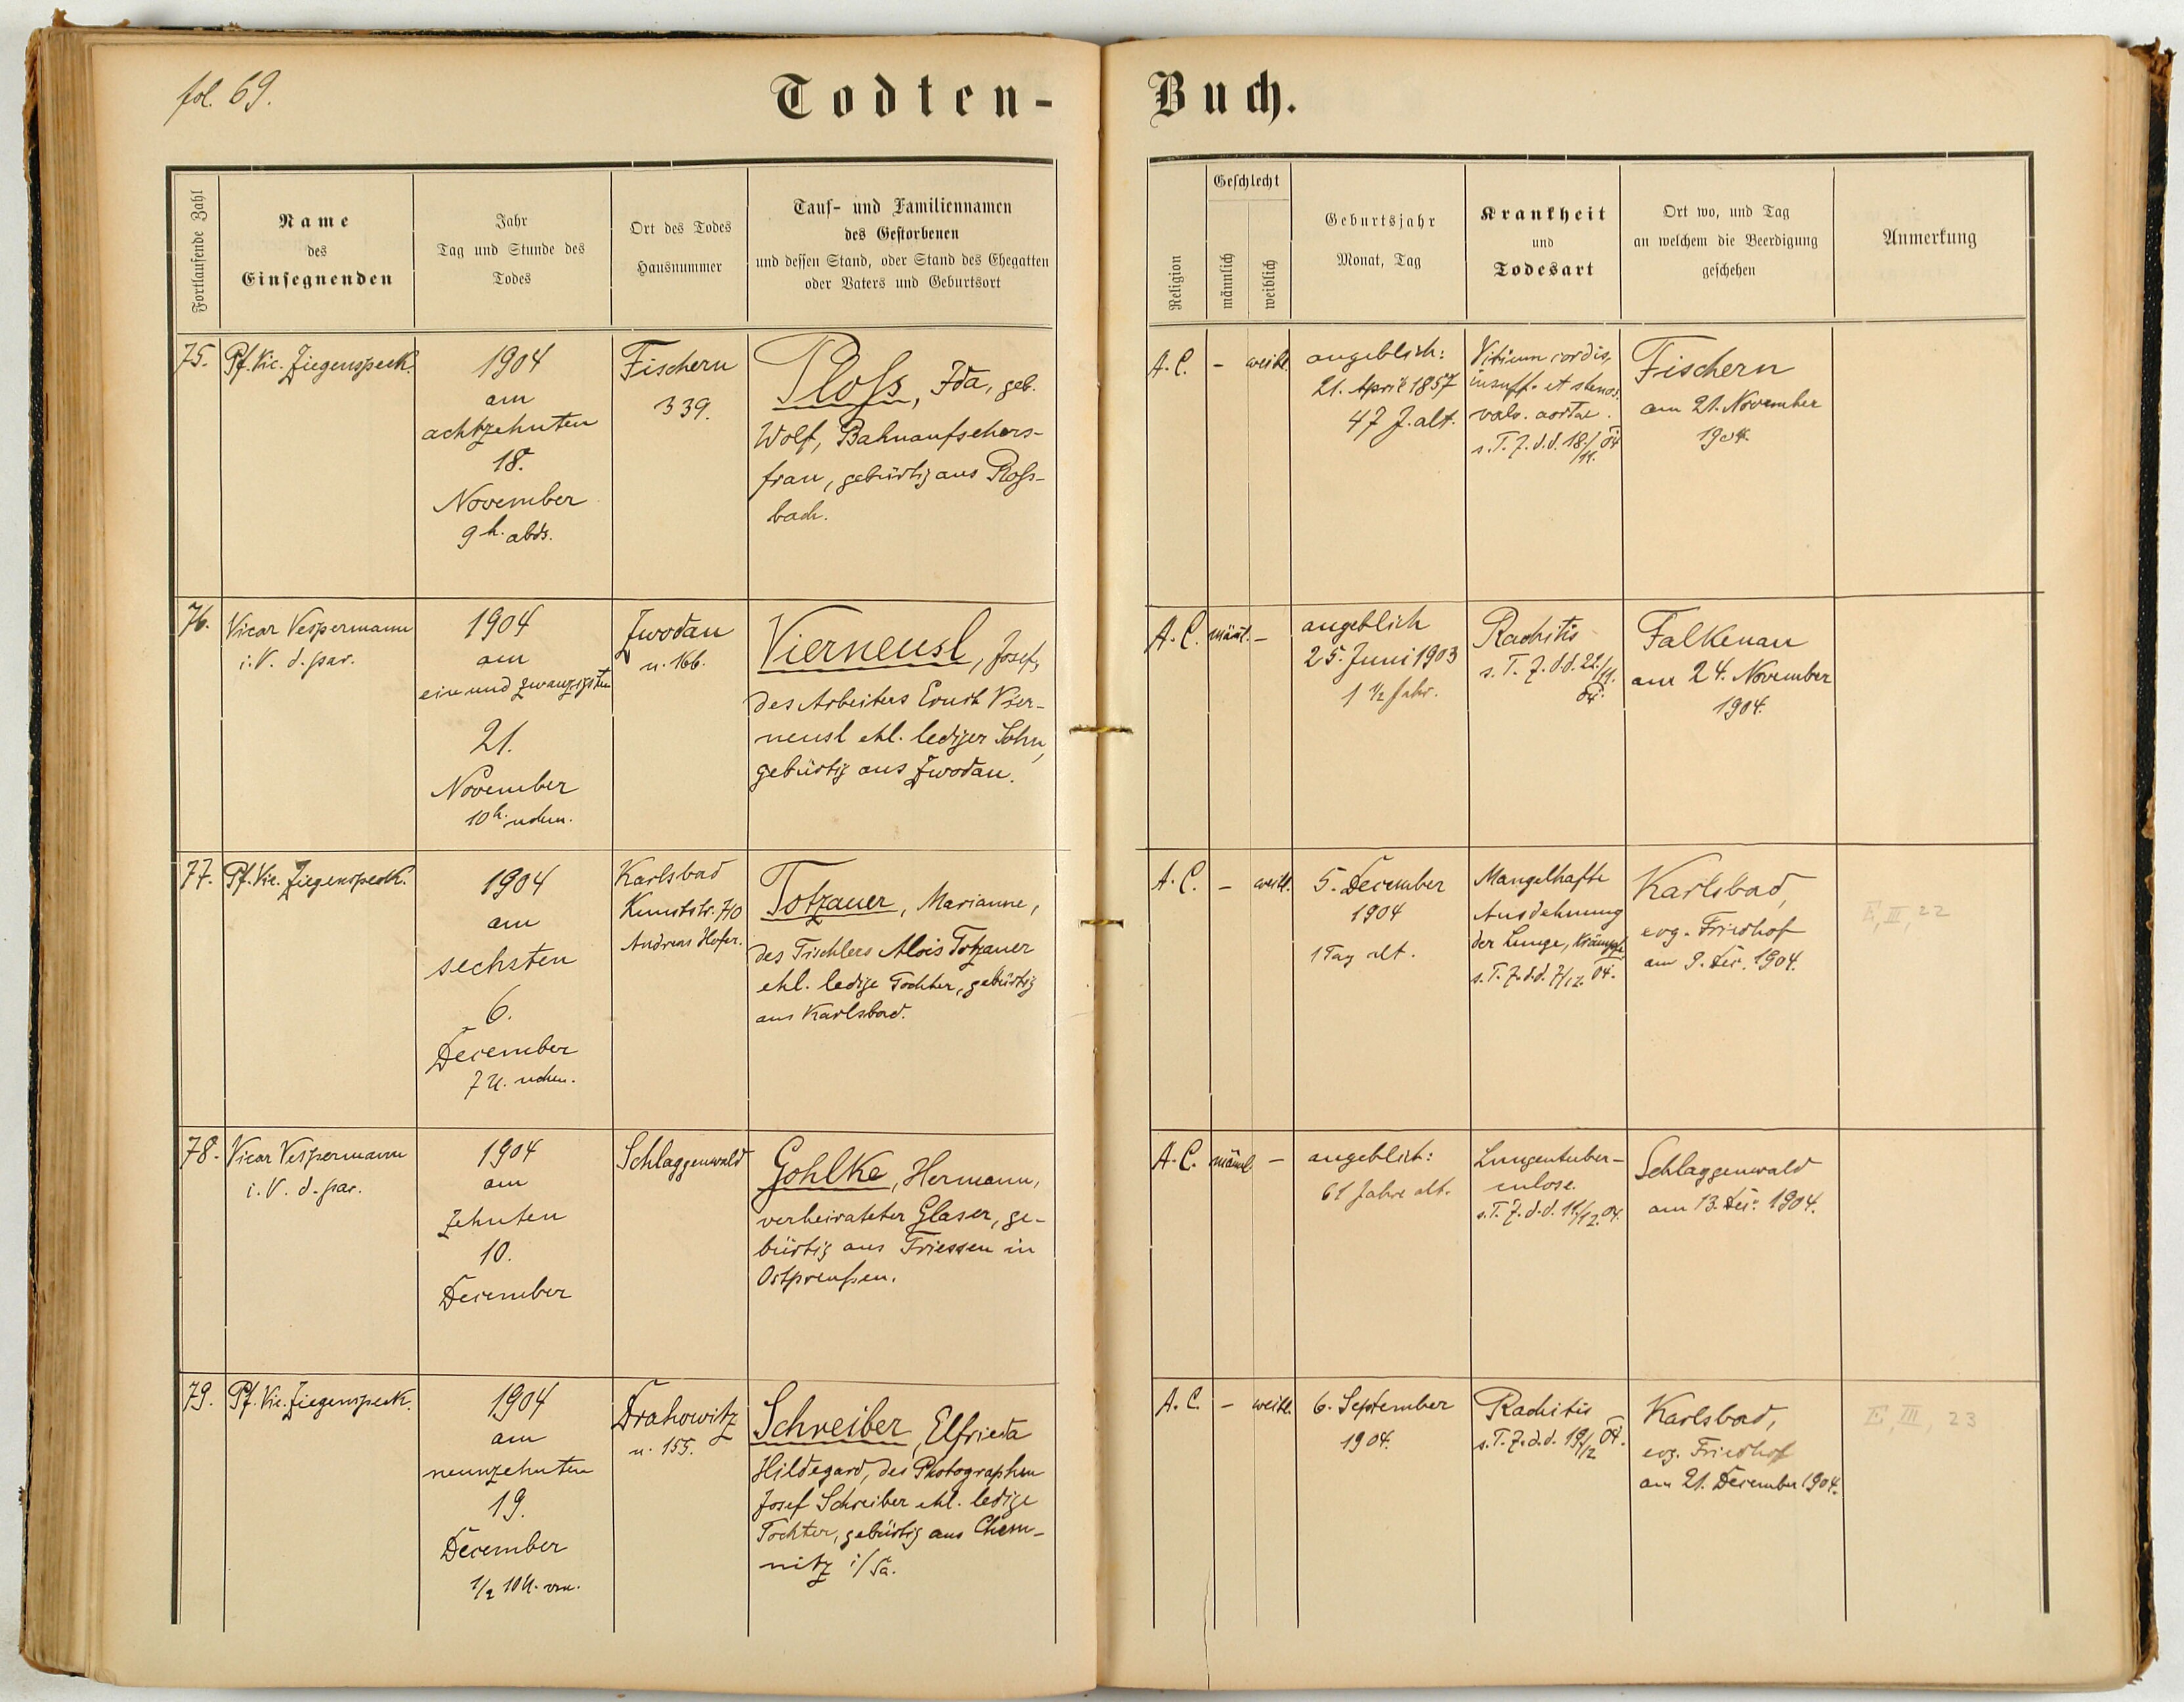 fol. 69.
Todten-Buch.
Fortlaufende Zahl
Name
des
Einsegnenden
Jahr
Tag und Stunde des
Todes
Ort des Todes
Hausnummer
Tauf- und Familiennamen
des Gestorbenen
und dessen Stand, oder Stand des Ehegatten
oder Vaters und Geburtsort
Religion
Geschlecht
männlich
weiblich
Geburtsjahr
Monat, Tag
Krankheit
und
Todesart
Ort wo, und Tag
an welchem die Beerdigung
geschehen
Anmerkung
75.
Pf. Vic. Ziegenspeck.
1904
am
achtzehnten
18.
November
9 h. abds.
Fischern
339.
Ploss, Ida, geb.
Wolf, Bahnaufsehers-
frau, gebürtig aus Ross-
bach.
A.C.
-
weibl.
angeblich:
21. April 1857
47 J. alt.
Vitium cordis,
insuff. et stenos.
valv. aortae.
s. T. Z. d. d. 18./11. 04
Fischern
am 21. November
1904.
76.
Vicar Vespermann
i. V. d. par.
1904
am
einundzwanzigsten
21.
November
10 h. nchm.
Zwodau
n. 166.
Vierneusl, Josef,
des Arbeiters Ernst Vier-
neusl ehl. lediger Sohn,
gebürtig aus Zwodau.
A.C.
männl.
-
angeblich
25. Juni 1903
1 1/2 Jahr.
Rachitis
s. T. Z. d. d. 22./11.
04.
Falkenau
am 24. November
1904.
77.
Pf. Vic. Ziegenspeck.
1904
am
sechsten
6.
December
7 U. nchm.
Karlsbad
Kunststr. 710
Andreas Hofer.
Totzauer, Marianne,
des Tischlers Alois Totzauer
ehl. ledige Tochter, gebürtig
aus Karlsbad.
A.C.
-
weibl.
5. December
1904
1 Tag alt.
Mangelhafte
Ausdehnung
der Lunge, Krämpfe
s. T. Z. d. d. 7/12. 04.
Karlsbad,
evg. Friedhof
am 9. Dec. 1904.
E, III, 22
78.
Vicar Vespermann
i. V. d. par.
1904
am
zehnten
10.
December
Schlaggenwald
Gohlke, Hermann,
verheirateter Glaser, ge-
bürtig aus Friessen in
Ostpreußen.
A.C.
männl.
-
angeblich:
61 Jahre alt.
Lungentuber-
culose.
s. T. Z. d. d. 11/12. 04.
Schlaggenwald
am 13. Dec. 1904.
79.
Pf. Vic. Ziegenspeck.
1904
am
neunzehnten
19.
December
1/2 10 U. vm.
Drahowitz
n. 155.
Schreiber, Elfrieda
Hildegard, des Photographen
Josef Schreiber ehl. ledige
Tochter, gebürtig aus Chem-
nitz i/Sa.
A.C.
-
weibl.
6. September
1904.
Rachitis
s. T. Z. d. d. 19/12 04.
Karlsbad,
evg. Friedhof
am 21. December 1904.
E, III, 23